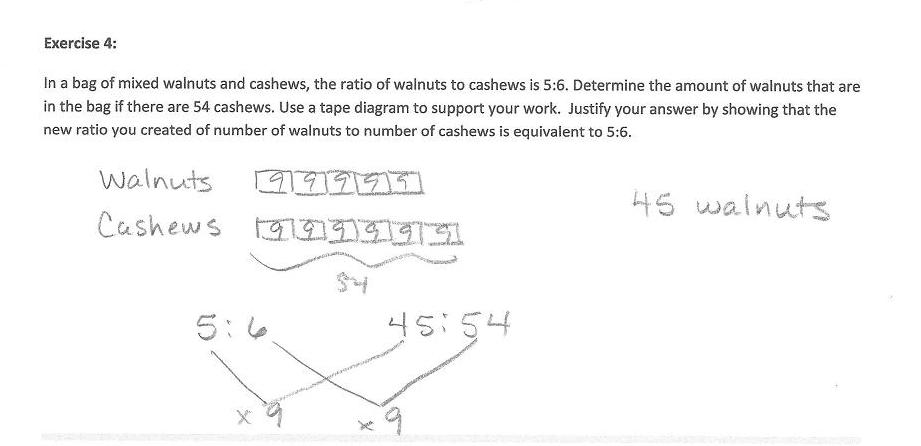 Exercise 4:
In a bag of mixed walnuts and cashews, the ratio of walnuts to cashews is 5:6. Determine the amount of walnuts that are
in the bag if there are 54 cashews. Use a tape diagram to support your work. Justify your answer by showing that the
new ratio you created of number of walnuts to number of cashews is equivalent to 5:6.
Walnuts 9 9 9 9 9
45 walnuts
Cashews 9 9 9 9 9 9
54
5:6 45:54
x 9 x 9